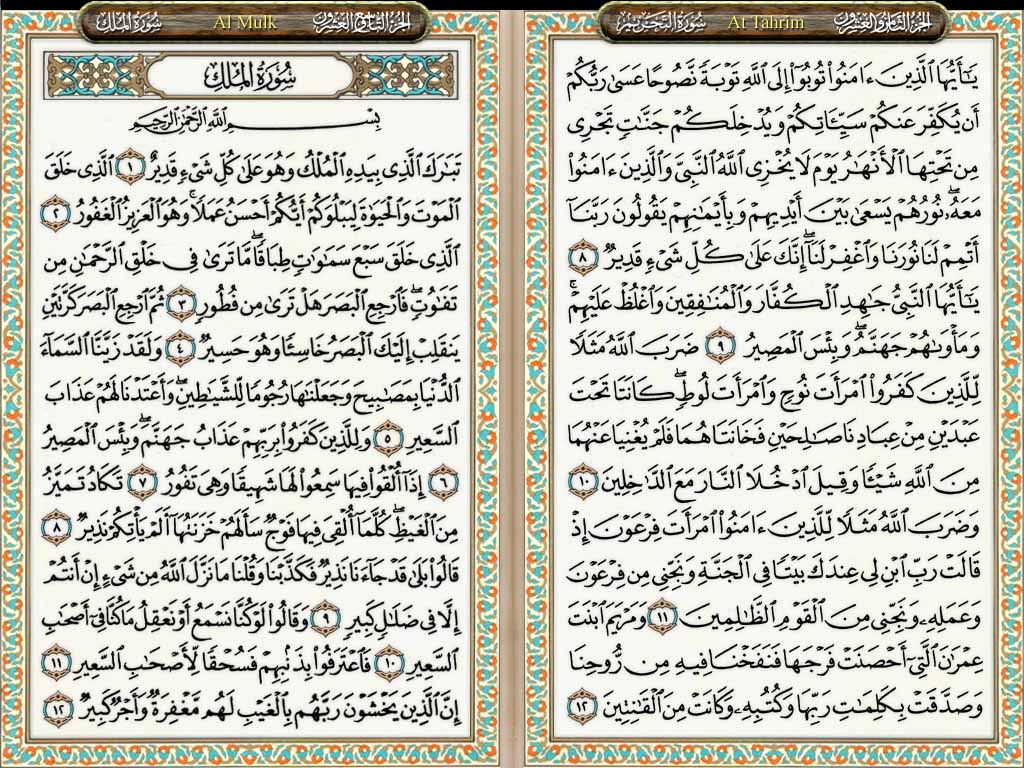 الجزء الثامن والعشرون
At Tahrim
سُورَةُ التَّحْرِيمِ
يَٰٓأَيُّهَا ٱلَّذِينَ ءَامَنُوا۟ تُوبُوٓا۟ إِلَى ٱللَّهِ تَوْبَةً نَّصُوحًا عَسَىٰ رَبُّكُمْ
أَن يُكَفِّرَ عَنكُمْ سَيِّـَٔاتِكُمْ وَيُدْخِلَكُمْ جَنَّٰتٍ تَجْرِى
مِن تَحْتِهَا ٱلْأَنْهَٰرُ يَوْمَ لَا يُخْزِى ٱللَّهُ ٱلنَّبِىَّ وَٱلَّذِينَ ءَامَنُوا۟
مَعَهُۥ ۖ نُورُهُمْ يَسْعَىٰ بَيْنَ أَيْدِيهِمْ وَبِأَيْمَٰنِهِمْ يَقُولُونَ رَبَّنَآ
أَتْمِمْ لَنَا نُورَنَا وَٱغْفِرْ لَنَآ ۖ إِنَّكَ عَلَىٰ كُلِّ شَىْءٍ قَدِيرٌ ٨
يَٰٓأَيُّهَا ٱلنَّبِىُّ جَٰهِدِ ٱلْكُفَّارَ وَٱلْمُنَٰفِقِينَ وَٱغْلُظْ عَلَيْهِمْ ۚ
وَمَأْوَىٰهُمْ جَهَنَّمُ ۖ وَبِئْسَ ٱلْمَصِيرُ ٩ ضَرَبَ ٱللَّهُ مَثَلًا
لِّلَّذِينَ كَفَرُوا۟ ٱمْرَأَتَ نُوحٍ وَٱمْرَأَتَ لُوطٍ ۖ كَانَتَا تَحْتَ
عَبْدَيْنِ مِنْ عِبَادِنَا صَٰلِحَيْنِ فَخَانَتَاهُمَا فَلَمْ يُغْنِيَا عَنْهُمَا
مِنَ ٱللَّهِ شَيْـًٔا وَقِيلَ ٱدْخُلَا ٱلنَّارَ مَعَ ٱلدَّٰخِلِينَ ١٠
وَضَرَبَ ٱللَّهُ مَثَلًا لِّلَّذِينَ ءَامَنُوا۟ ٱمْرَأَتَ فِرْعَوْنَ إِذْ
قَالَتْ رَبِّ ٱبْنِ لِى عِندَكَ بَيْتًا فِى ٱلْجَنَّةِ وَنَجِّنِى مِن فِرْعَوْنَ
وَعَمَلِهِۦ وَنَجِّنِى مِنَ ٱلْقَوْمِ ٱلظَّٰلِمِينَ ١١ وَمَرْيَمَ ٱبْنَتَ
عِمْرَٰنَ ٱلَّتِىٓ أَحْصَنَتْ فَرْجَهَا فَنَفَخْنَا فِيهِ مِن رُّوحِنَا
وَصَدَّقَتْ بِكَلِمَٰتِ رَبِّهَا وَكُتُبِهِۦ وَكَانَتْ مِنَ ٱلْقَٰنِتِينَ ١٢
الجزء التاسع والعشرون
Al Mulk
سُورَةُ المُلْكِ
سُورَةُ المُلْكِ
بِسْمِ ٱللَّهِ ٱلرَّحْمَٰنِ ٱلرَّحِيمِ
تَبَٰرَكَ ٱلَّذِى بِيَدِهِ ٱلْمُلْكُ وَهُوَ عَلَىٰ كُلِّ شَىْءٍ قَدِيرٌ ١ ٱلَّذِى خَلَقَ
ٱلْمَوْتَ وَٱلْحَيَوٰةَ لِيَبْلُوَكُمْ أَيُّكُمْ أَحْسَنُ عَمَلًا ۚ وَهُوَ ٱلْعَزِيزُ ٱلْغَفُورُ ٢
ٱلَّذِى خَلَقَ سَبْعَ سَمَٰوَٰتٍ طِبَاقًا ۖ مَّا تَرَىٰ فِى خَلْقِ ٱلرَّحْمَٰنِ مِن
تَفَٰوُتٍ ۖ فَٱرْجِعِ ٱلْبَصَرَ هَلْ تَرَىٰ مِن فُطُورٍ ٣ ثُمَّ ٱرْجِعِ ٱلْبَصَرَ كَرَّتَيْنِ
يَنقَلِبْ إِلَيْكَ ٱلْبَصَرُ خَاسِئًا وَهُوَ حَسِيرٌ ٤ وَلَقَدْ زَيَّنَّا ٱلسَّمَآءَ
ٱلدُّنْيَا بِمَصَٰبِيحَ وَجَعَلْنَٰهَا رُجُومًا لِّلشَّيَٰطِينِ ۖ وَأَعْتَدْنَا لَهُمْ عَذَابَ
ٱلسَّعِيرِ ٥ وَلِلَّذِينَ كَفَرُوا۟ بِرَبِّهِمْ عَذَابُ جَهَنَّمَ ۖ وَبِئْسَ ٱلْمَصِيرُ
٦ إِذَآ أُلْقُوا۟ فِيهَا سَمِعُوا۟ لَهَا شَهِيقًا وَهِىَ تَفُورُ ٧ تَكَادُ تَمَيَّزُ
مِنَ ٱلْغَيْظِ ۖ كُلَّمَآ أُلْقِىَ فِيهَا فَوْجٌ سَأَلَهُمْ خَزَنَتُهَآ أَلَمْ يَأْتِكُمْ نَذِيرٌ ٨
قَالُوا۟ بَلَىٰ قَدْ جَآءَنَا نَذِيرٌ فَكَذَّبْنَا وَقُلْنَا مَا نَزَّلَ ٱللَّهُ مِن شَىْءٍ إِنْ أَنتُمْ
إِلَّا فِى ضَلَٰلٍ كَبِيرٍ ٩ وَقَالُوا۟ لَوْ كُنَّا نَسْمَعُ أَوْ نَعْقِلُ مَا كُنَّا فِىٓ أَصْحَٰبِ
ٱلسَّعِيرِ ١٠ فَٱعْتَرَفُوا۟ بِذَنۢبِهِمْ فَسُحْقًا لِّأَصْحَٰبِ ٱلسَّعِيرِ ١١
إِنَّ ٱلَّذِينَ يَخْشَوْنَ رَبَّهُم بِٱلْغَيْبِ لَهُم مَّغْفِرَةٌ وَأَجْرٌ كَبِيرٌ ١٢